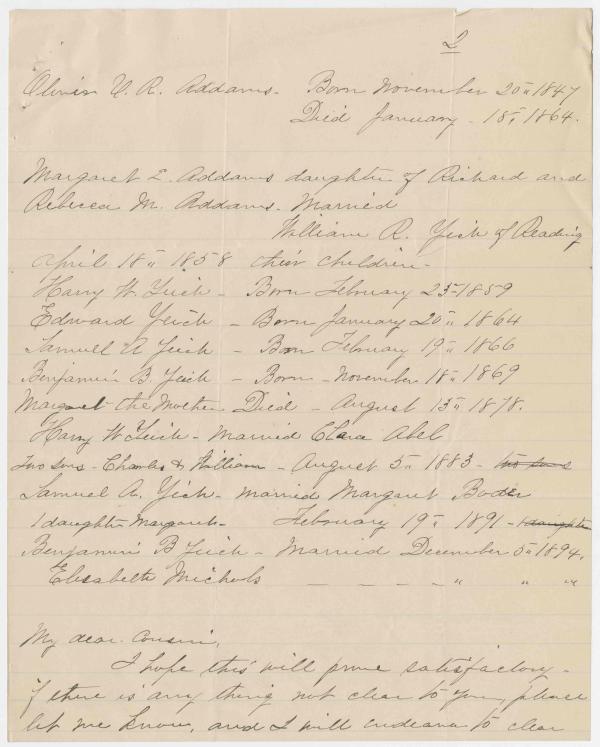 2
Oliver V. R. Addams - Born November 20" 1847
Died January - 18", 1864.
Margaret E. Addams daughter of Richard and
Rebecca M. Addams. Married
William R. Yeich of Reading
April 18" 1858 their children -
Harry W. Yeich - Born February 25 - 1859
Edward Yeich - Born January 20" 1864
Samuel A Yeich - Born February 19" 1866
Benjamin B. Yeich - Born - November 18" 1869
Margaret the Mother Died - August 13" 1878.
Harry W Yeich - Married Clara Abel
Two sons - Charles & William - August 5" 1883 - two sons
Samuel A. Yeich - Married Margaret Boder
1 daughter Margaret - February 19" 1891 - 1 daughter
Benjamin B Yeich - Married December 5" 1894.
Elisabeth Nichols - - - - " " "
My dear Cousin,
I hope this will prove satisfactory -
if there is any thing not clear to you, please
let me know, and I will endeavor to clear